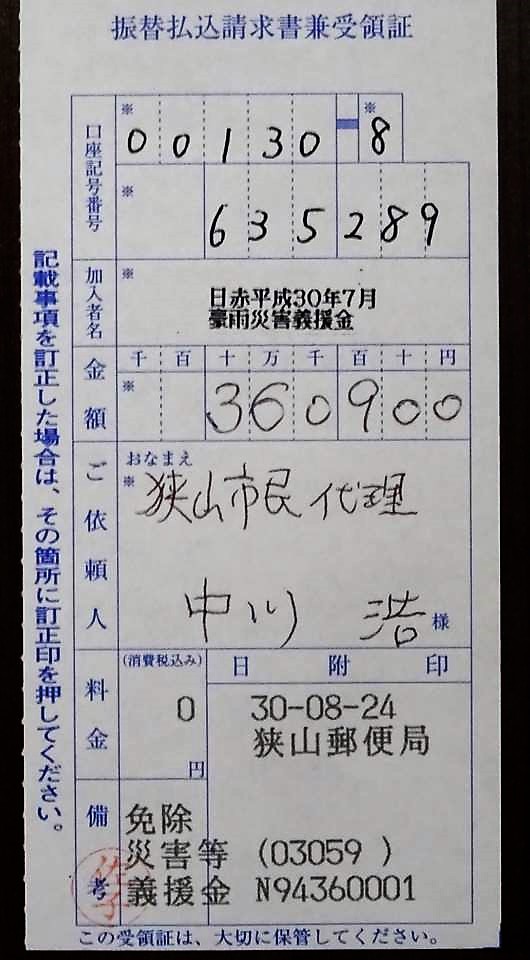 振替払込請求書兼受領証
口座記号番号
※ 00130-8 ※
※ 635289
加入者名
※ 日赤平成30年7月
豪雨災害義援金
金額
千 百 十 万 千 百 十 円
※ 360900
ご依頼人
おなまえ
※ 狭山市民代理
中川 浩 様
料金
(消費税込み)
0
円
日 附 印
30-08-24
狭山郵便局
備考
免除
災害等 (03059 )
義援金 N94360001
記載事項を訂正した場合は、その箇所に訂正印を押してください。
この受領証は、大切に保管してください。